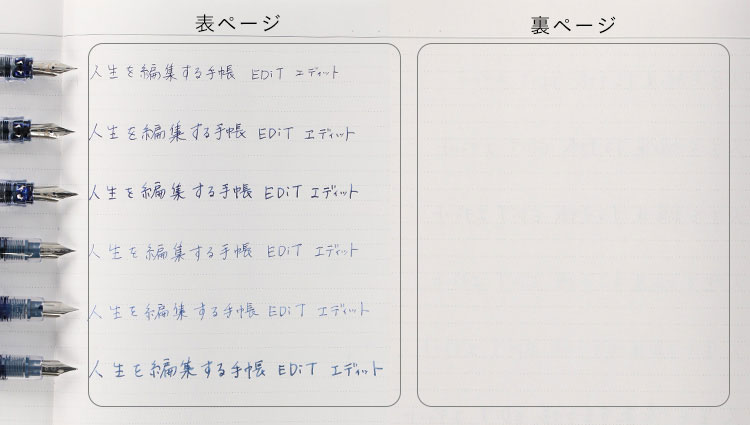 表ページ
裏ページ
人生を編集する手帳 EDiT エディット
人生を編集する手帳 EDiT エディット
人生を編集する手帳 EDiT エディット
人生を編集する手帳 EDiT エディット
人生を編集する手帳 EDiT エディット
人生を編集する手帳 EDiT エディット